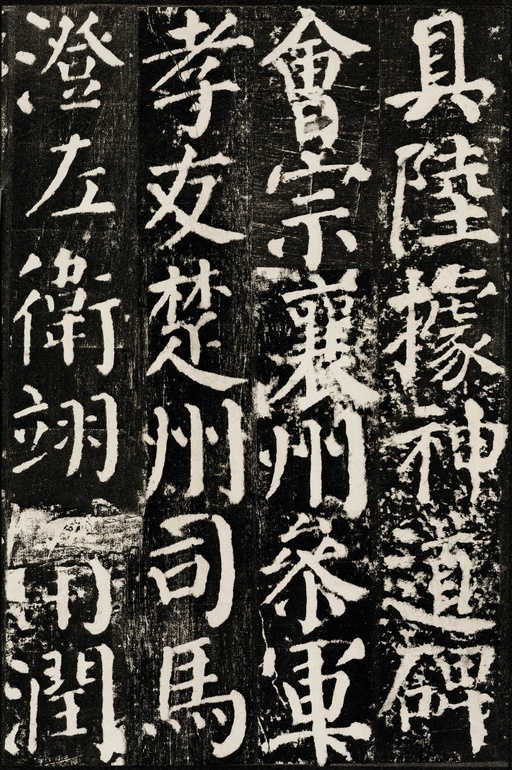 具陸據神道碑
會宗襄州叅軍
孝友楚州司馬
澄左衛翊潤